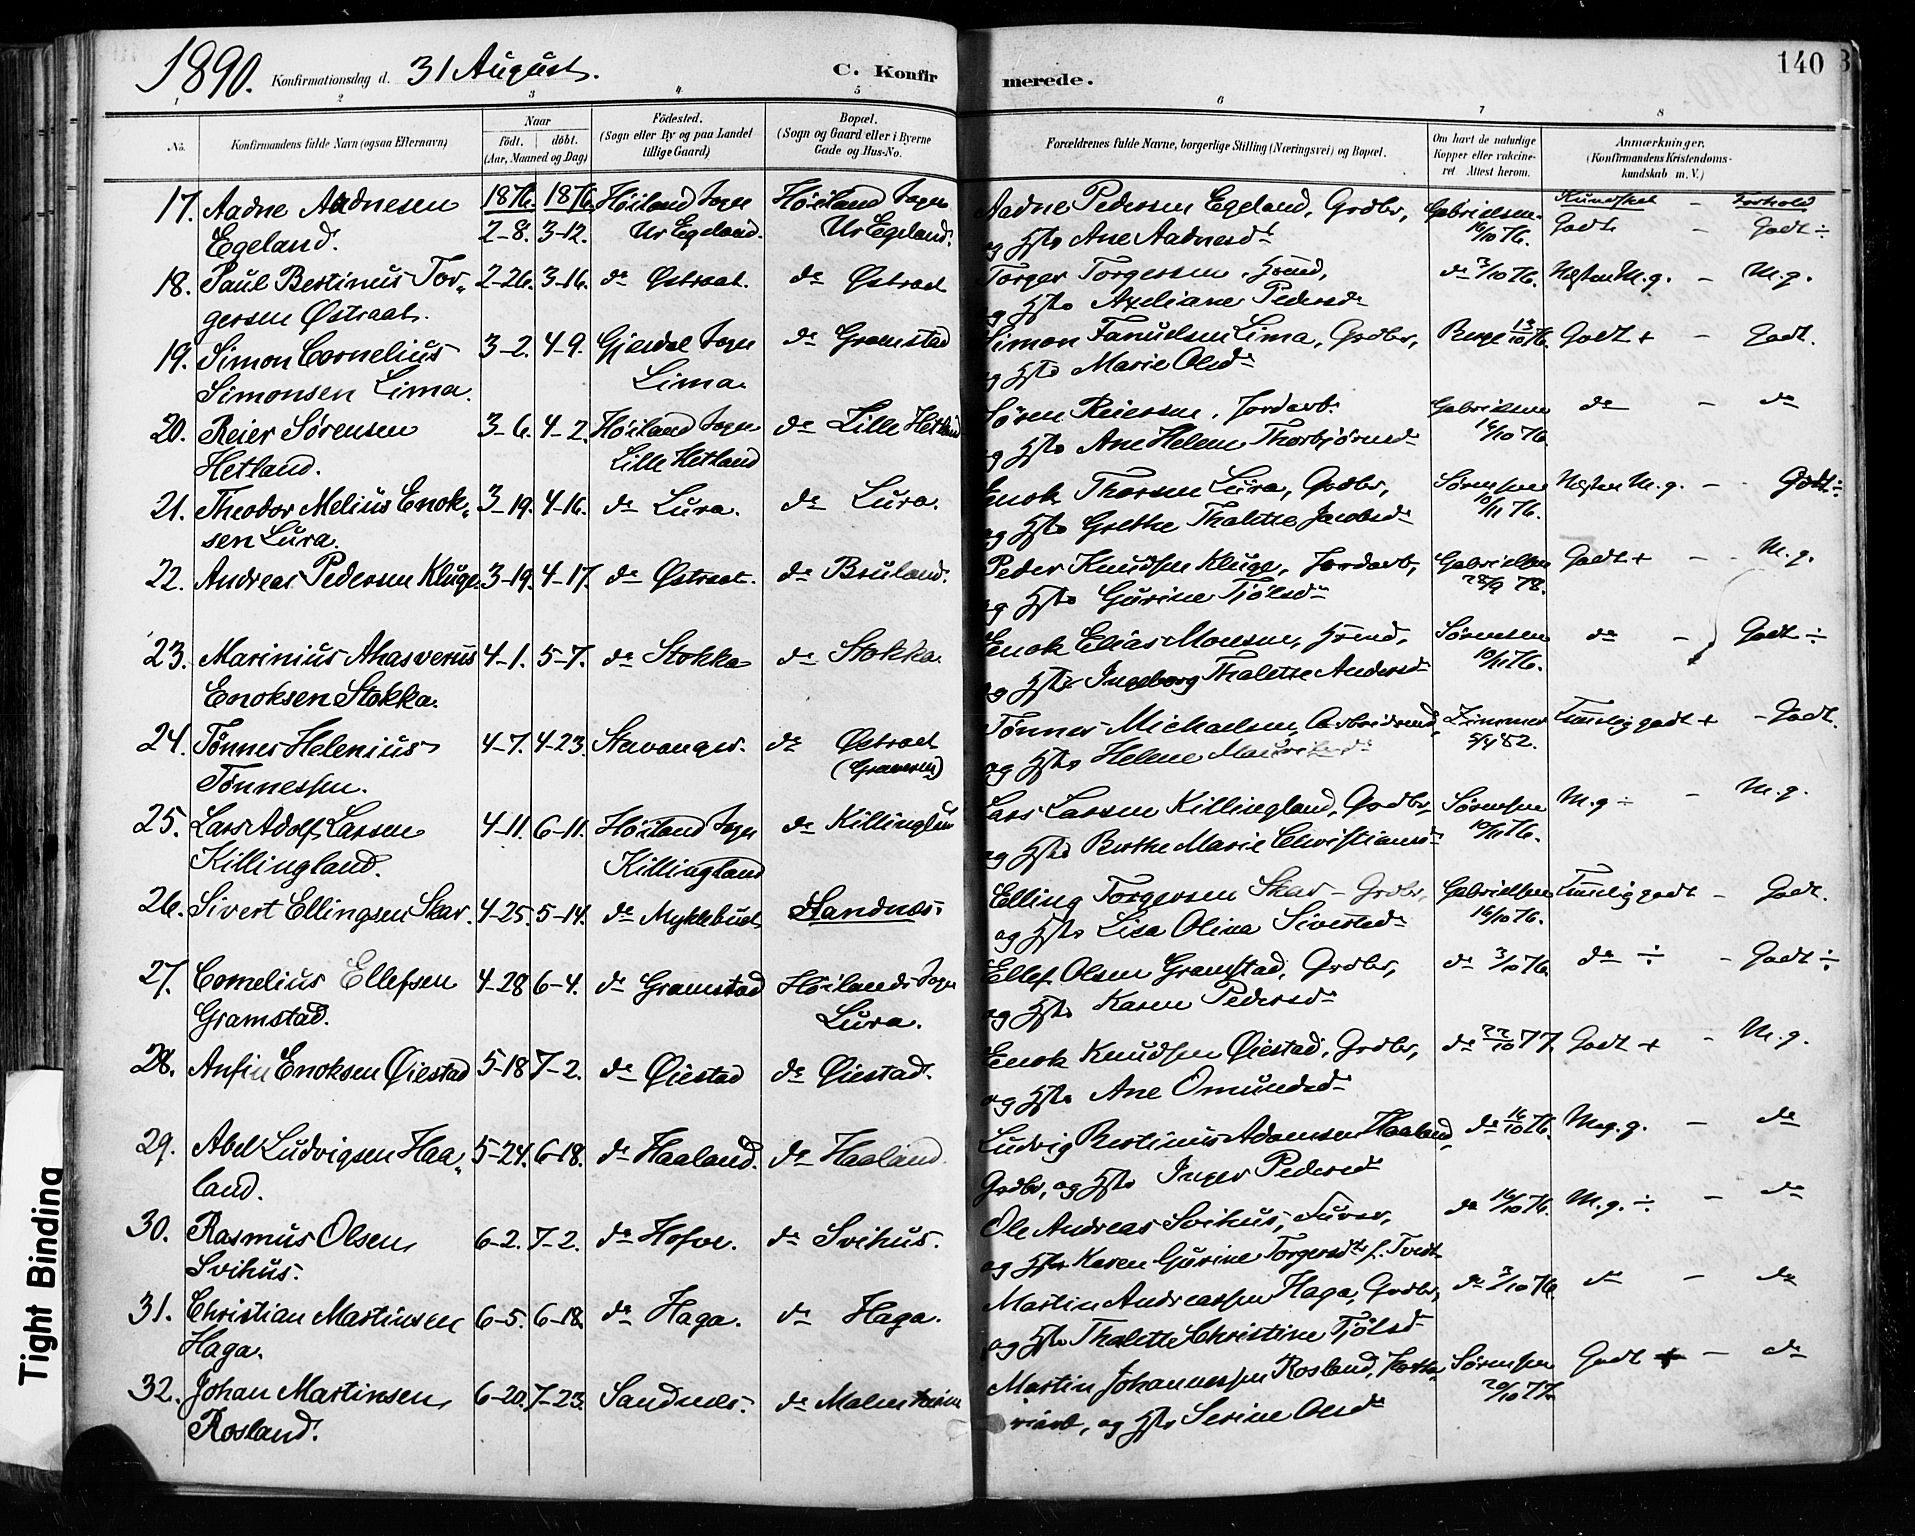 1890. Konfirmationsdag d. 31 August. C. Konfir merede. 140
1 2 3 4 5 6 7 8
No. Konfirmandens fulde Navn (ogsaa Efternavn) Naar födt. döbt. (Aar, Maaned og Dag) Födested. (Sogn eller By og paa Landet tillige Gaard) Bopæl. (Sogn og Gaard eller i Byerne Gade og Hus-No. Forældrenes fulde Navne, borgerlige Stilling (Næringsvei) og Bopæl. Om havt de naturlige Kopper eller vakcineret. Attest herom. Anmærkninger. (Konfirmandens Kristendomskundskab m. V.)
17. Aadne Aadnesen 1876. 1876. Höiland Sogn Höiland Sogn Aadne Pedersen Egeland, Grdbr, Gabrielsen Kundskab – Forhold
Egeland. 2-8. 3-12. Ur Egeland. Ur Egeland. og Hstr Ane Aadnesdr 16/10 76. Godt – Godt ÷
18. Paul Bertinus Tor- 2-26. 3-16. do Østraat. do Østraat Torger Torgersen, do 3/10 76. Næsten M.g. – M.g.
gersen Østraat. og Hstr Axeliane Pedersdr
19. Simon Cornelius 3-2. 4-9. Gjesdal Sogn do Gramstad Simon Fanuelsen Lima, Grdbr, 13/10 76. Godt + – Godt.
Simonsen Lima. Lima. og Hstr Marie Olsdr
20. Reier Sørensen 3-6. 4-2. Höiland Sogn do Lille Hetland Søren Reiersen, Jordarb. Gabrielsen do – do
Hetland. Lille Hetland og Hstr Ane Helene Thorbjørnsdr 16/10 76.
21. Theodor Melius Enok- 3-19. 4-16. do Lura. do Lura. Enok Thorsen Lura, Grdbr, Sørensen Næsten M.g. – Godt ÷
sen Lura. og Hstr Grethe Thalette Jacobsdr 10/11 76.
22. Andreas Pedersen Kluge 3-19. 4-17. do Østraat. do Bruland. Peder Knudsen Kluge, Jordarb, Gabrielsen Godt + – M.g.
og Hstr Gurine Tjölsdr 28/9 78.
23. Marinius Ahasverus 4-1. 5-7. do Stokka do Stokka. Enok Elias Monsen, Sørensen do – Godt ÷
Enoksen Stokka. og Hstr Ingeborg Thalette Andersdr 10/11 76.
24. Tønnes Helenius 4-7. 4-23. Stavanger. do Østraat Tønnes Michaelsen, Arbeidsmd, Zimmer Temmelig godt + – Godt.
Tønnessen. (Graveren) og Hstr Helene 5/4 82.
25. Lars Adolf Larsen 4-11. 6-11. Höiland Sogn do Killingland Lars Larsen Killingland, Grdbr Sørensen M.g ÷ – M.g.
Killingland. Killingland og Hstr Berthe Marie Christiansdr 10/11 76.
26. Sivert Ellingsen Skar. 4-25. 5-14. do Myklebust Sandnes. Elling Torgersen Skar – Grdbr, Gabrielsen Temmelig godt – Godt.
og Hstr Lisa Olina Sivertsdr 16/10 76.
27. Cornelius Ellefsen 4-28 6-4. do Gramstad Höilands Sogn Ellef Olsen Gramstad, Grdbr, do 3/10 76. do ÷ – Godt ÷
Gramstad. Lura. og Hstr Karen Pedersdr
28. Anfin Enoksen Øiestad 5-18 7-2. do Øiestad do Øiestad. Enok Knudsen Øiestad, Grdbr, do 22/10 77. Godt + – M.g.
og Hstr Ane Omundsdr
29. Abel Ludvigsen Haa- 5-24. 6-18. do Haaland. do Haaland. Ludvig Bertinus Adamsen Haaland, do 16/10 76. Meg. g. – do
land. Grdbr, og Hstr Inger Pedersdr
30. Rasmus Olsen 6-2. 7-2. do Hofve. do Svihus. Ole Andreas Svihus, do 16/10 76. M.g. ÷ – do
Svihus. og Hstr Karen Gurine Torgersdtr f. Tvedt
31. Christian Martinsen 6-5. 6-18. do Haga. do Haga. Martin Andreassen Haga, Grdbr, do 3/10 76 do – do
Haga. og Hstr Thalette Christine Tjölsdr
32. Johan Martinsen 6-20. 7-23. Sandnes. do Malmheim Martin Johannessen Rosland, Sørensen Godt + – do
Rosland. og Hstr Serine Olsdr 20/10 77
Tight Binding